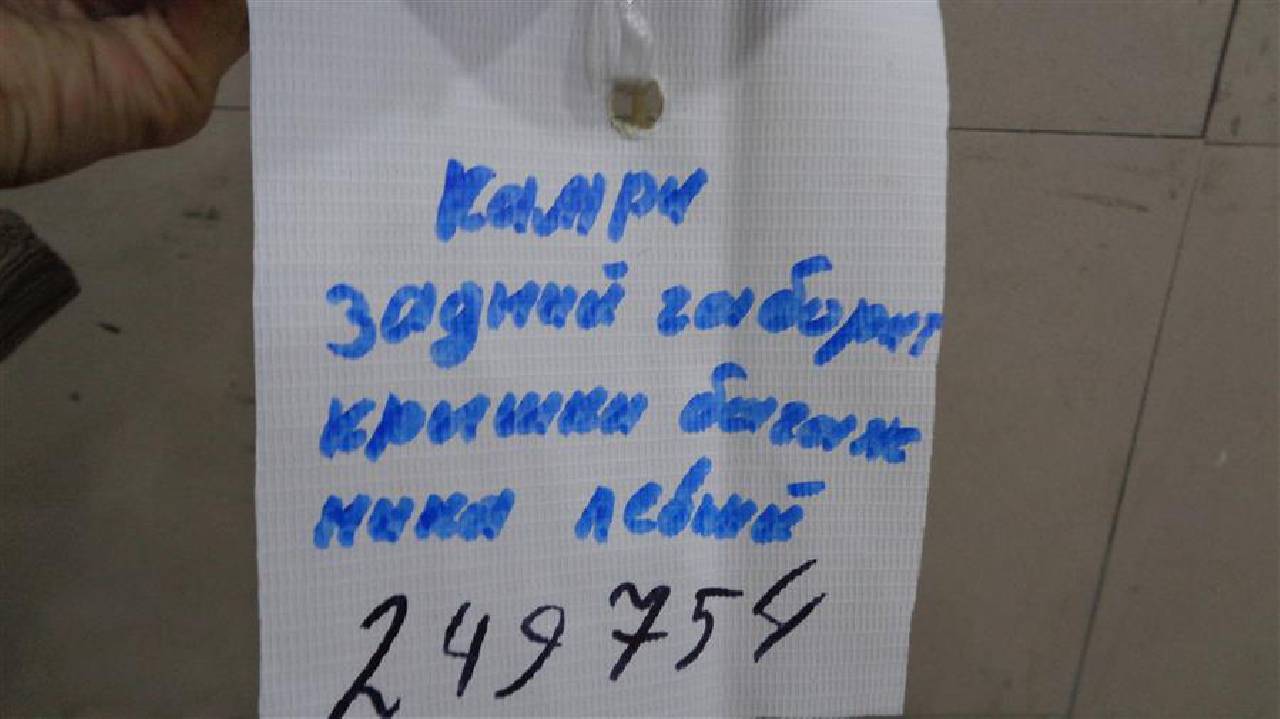 Камри
задний габарит
крышки багаж
ника левый
249754